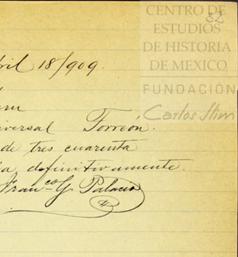 32
CENTRO DE
ESTUDIOS
DE HISTORIA
DE MEXICO
FUNDACIÓN
Carlos Slim
ril 18/909.
iversal Torreón.
de tres cuarenta
definitivamente.
Fran.co G Palacio